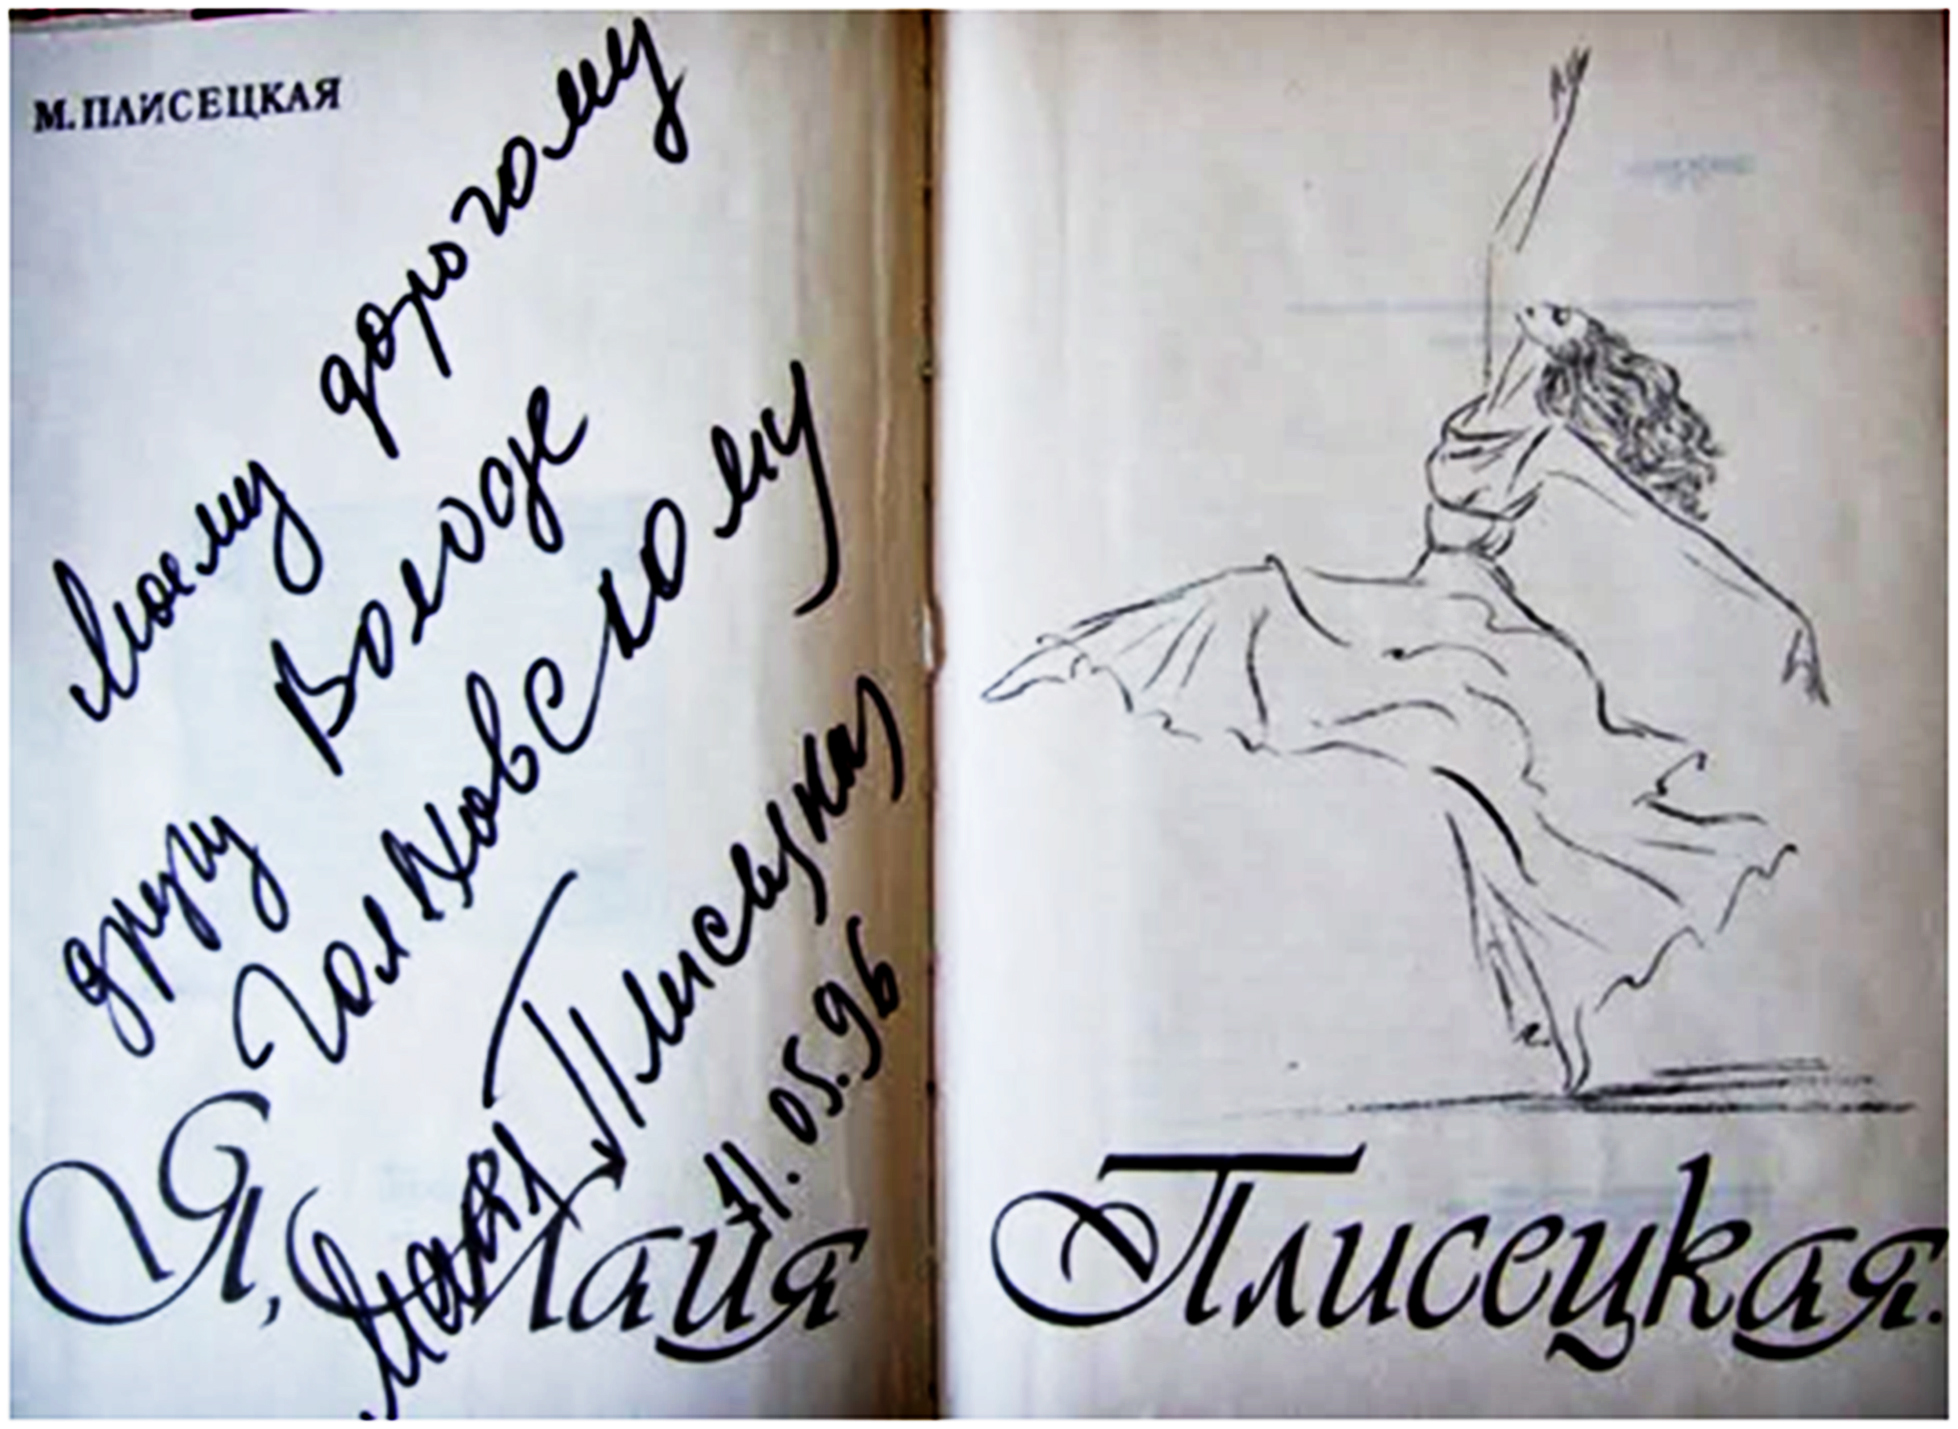 М. ПЛИСЕЦКАЯ
Моему дорогому
другу Володе
Голяховскому
Майя Плисецкая
11.05.96
Я, Майя
Плисецкая.